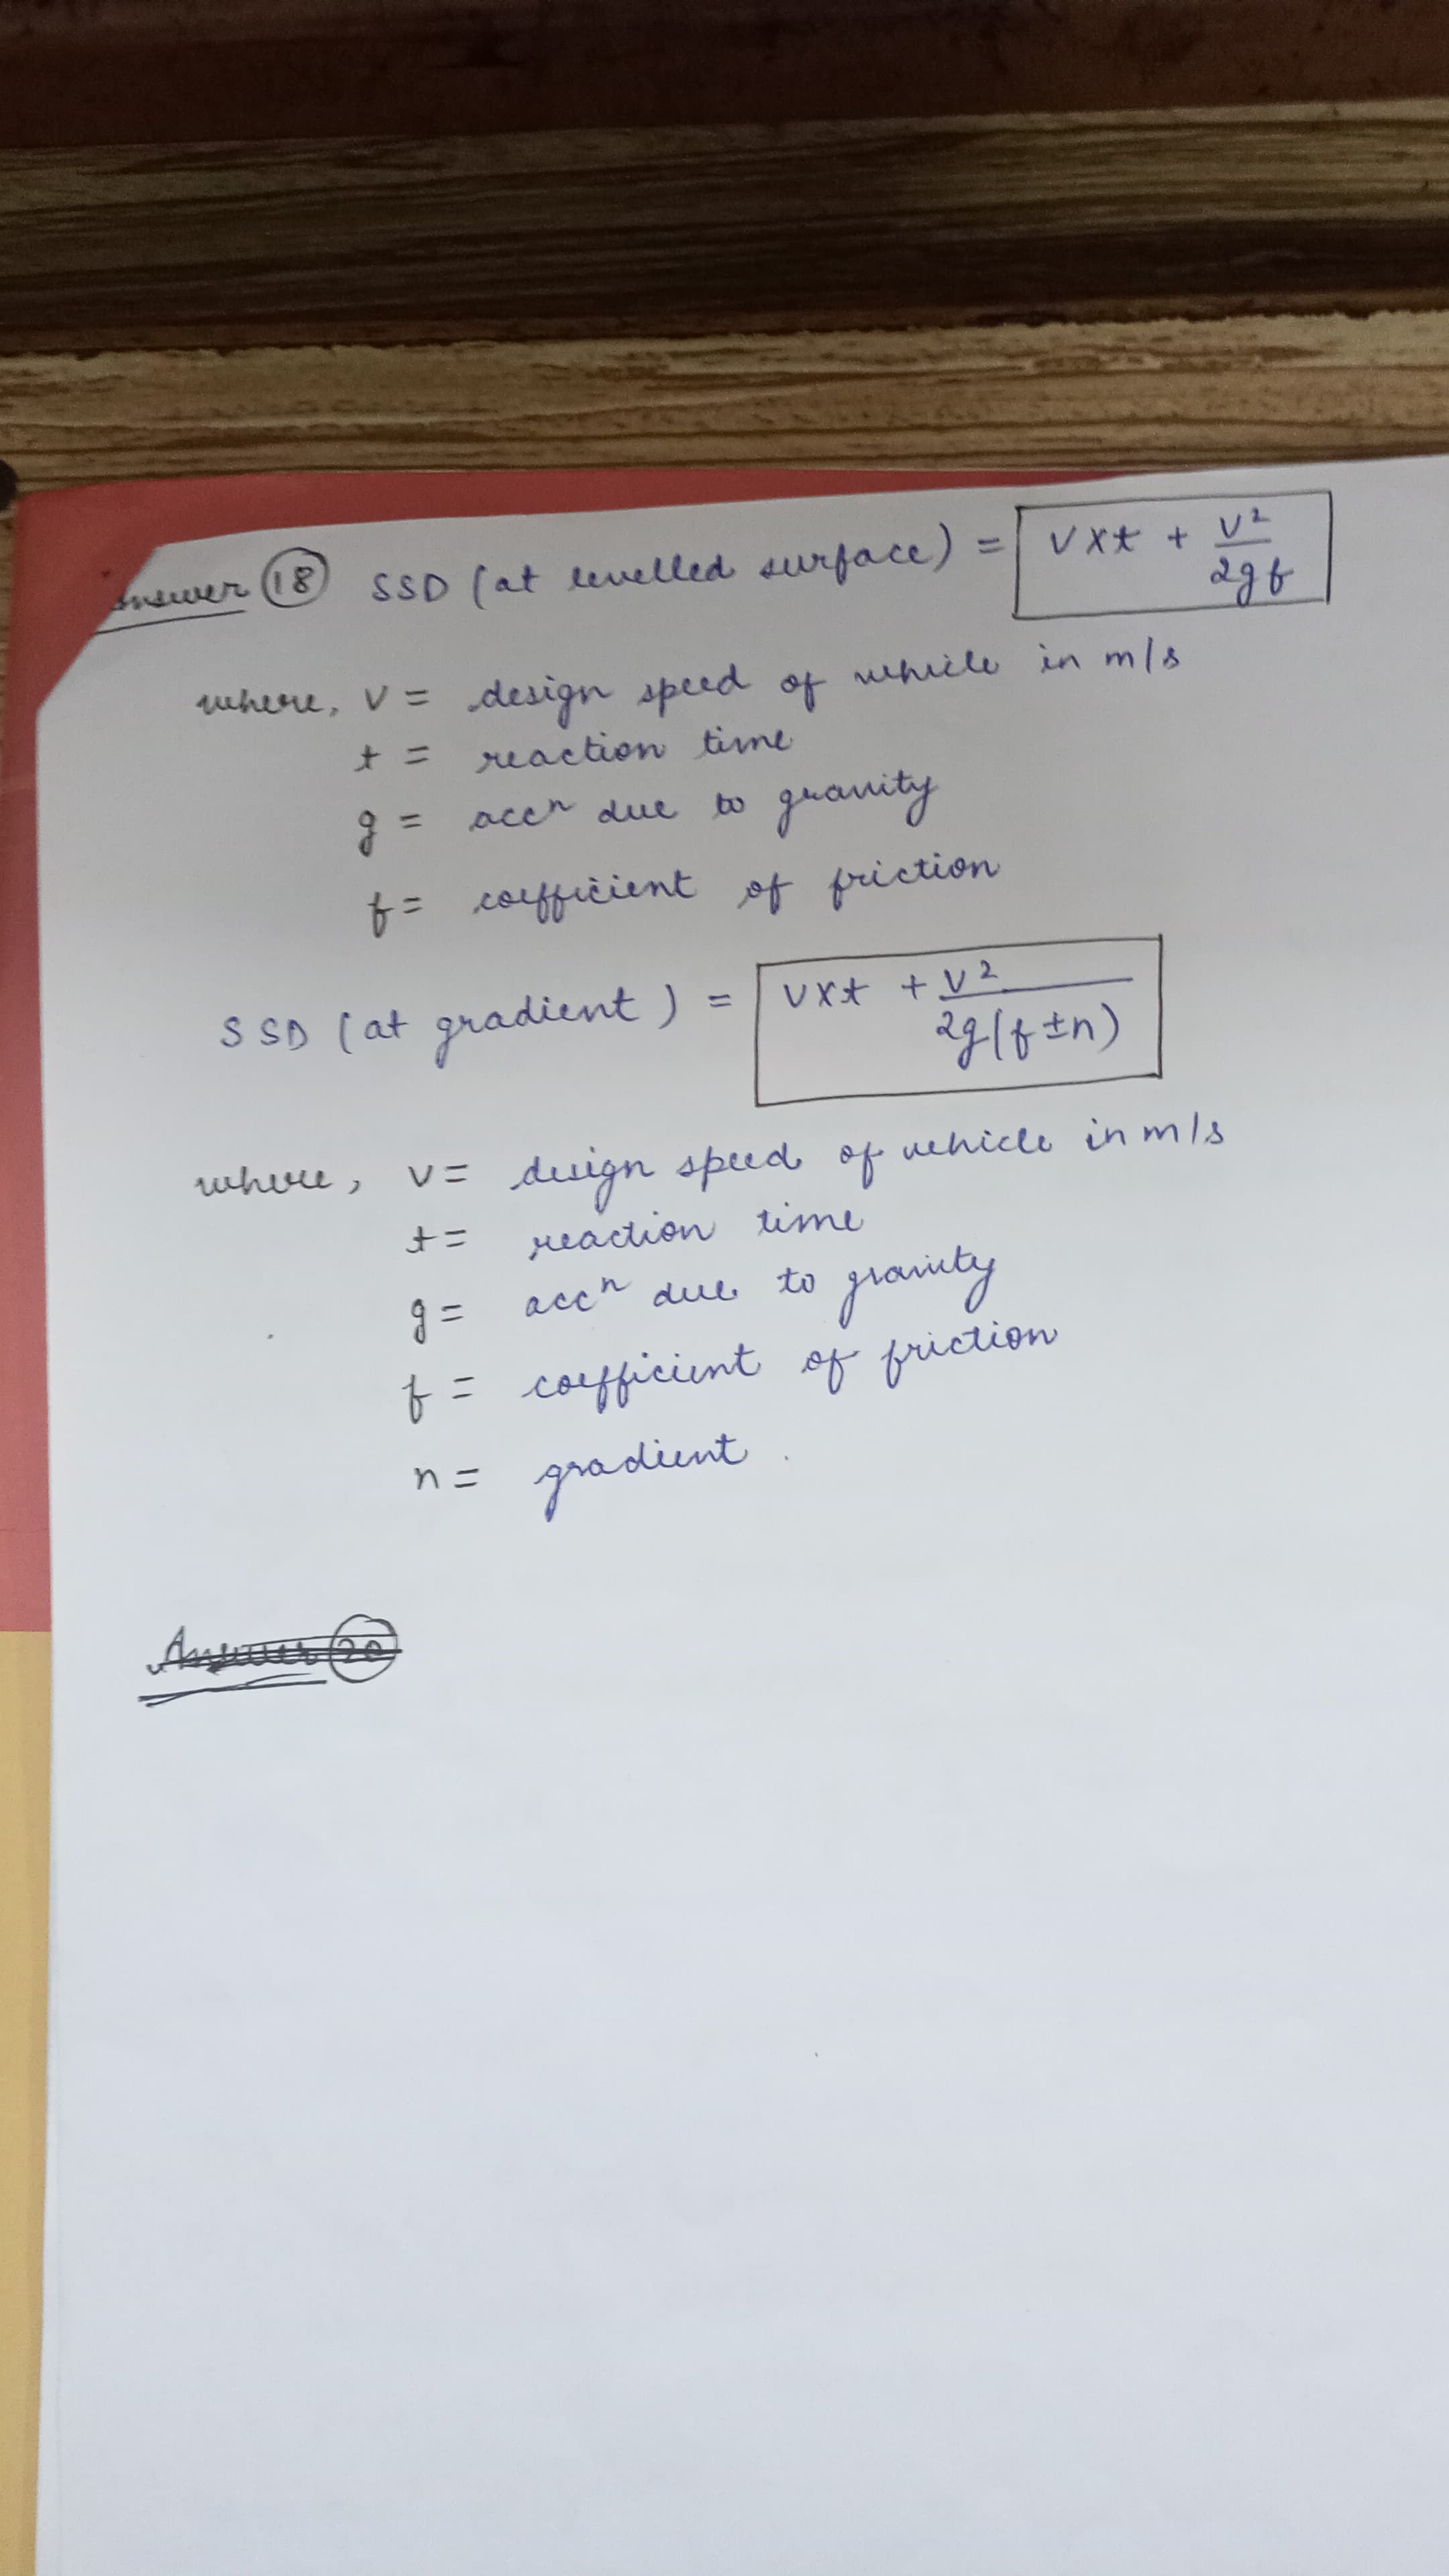 Answer 18 SSD (at levelled surface) = v x t + v²/2gf
where, v = design speed of vehicle in m/s
t = reaction time
g = accⁿ due to gravity
f = coefficient of friction
SSD (at gradient) = v x t + v²/2g(f ± n)
where, v = design speed of vehicle in m/s
t = reaction time
g = accⁿ due to gravity
f = coefficient of friction
n = gradient.
Answer 20